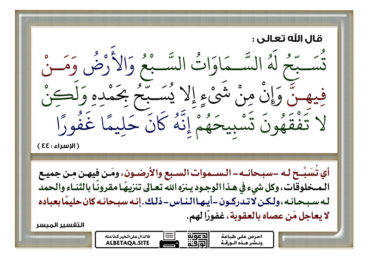 قال الله تعالى :
تُسَبِّحُ لَهُ السَّمَاوَاتُ السَّبْعُ وَالأَرْضُ وَمَنْ
فِيهِنَّ وَإِنْ مِنْ شَيْءٍ إِلا يُسَبِّحُ بِحَمْدِهِ وَلَكِنْ
لا تَفْقَهُونَ تَسْبِيحَهُمْ إِنَّهُ كَانَ حَلِيمًا غَفُورًا
( الإسراء : ٤٤ )
أي تُسَبِّح له -سبحانه- السموات السبع والأرضون، ومَن فيهن مِن جميع
المخلوقات، وكل شيء في هذا الوجود ينزه الله تعالى تنزيهًا مقرونًا بالثناء والحمد
له سبحانه، ولكن لا تدركون -أيها الناس- ذلك. إنه سبحانه كان حليمًا بعباده
لا يعاجل مَن عصاه بالعقوبة، غفورًا لهم.
التفسير الميسر
احرص على طباعة
ونشر هذه الورقة
فالدال على الخير كفاعله
ALBETAQA.SITE